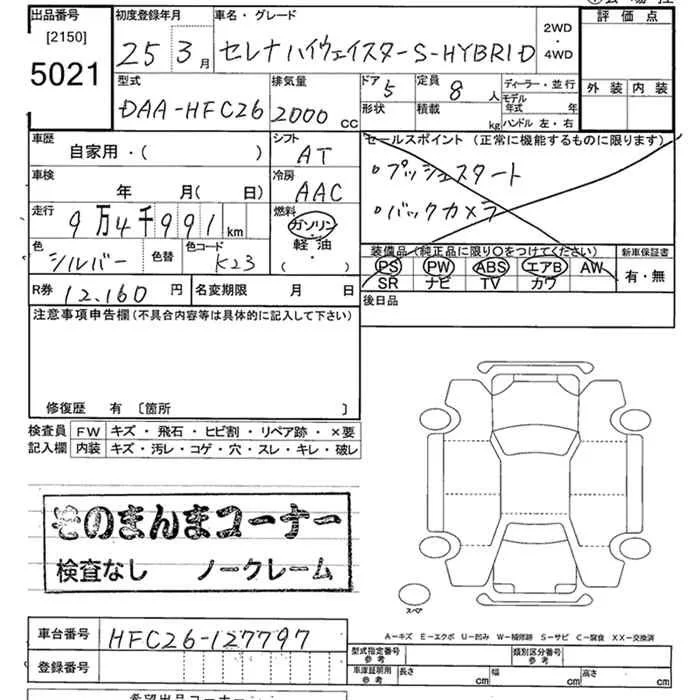 出品番号 初度登録年月 車名・グレード 2WD・4WD 評価点
[2150]
5021
25年3月 セレナ ハイウェイスターS-HYBRID
型式 排気量 ドア 定員 ディーラー・並行 外装 内装
DAA-HFC26 2000cc 5 8人 モデル年式 年
形状 積載 kg ハンドル 左・右
車歴 シフト セールスポイント (正常に機能するものに限ります)
自家用・( ) AT
。プッシュスタート
車検 冷房
年 月(日) AAC
。バックカメラ
走行 燃料
9万4千991km ガソリン・軽油・( )
色 色替 色コード 装備品(純正品に限り○をつけてください) 新車保証書
シルバー K23 PS PW ABS エアB AW 有・無
SR ナビ TV カワ
R券 12,160円 名変期限 月 日 後日品
注意事項申告欄(不具合内容等は具体的に記入して下さい)
修復歴 有 [箇所 ]
検査員 FW キズ・飛石・ヒビ割・リペア跡・×要
記入欄 内装 キズ・汚レ・コゲ・穴・スレ・キレ・破レ
そのまんまコーナー
検査なし ノークレーム
スペア
A-キズ E-エクボ U-凹み W-補修跡 S-サビ C-腐食 XX-交換済
車台番号 HFC26-127797 型式指定番号 参考 類別区分番号 参考
登録番号 車庫証明用 参考 長さ cm 幅 cm 高さ cm